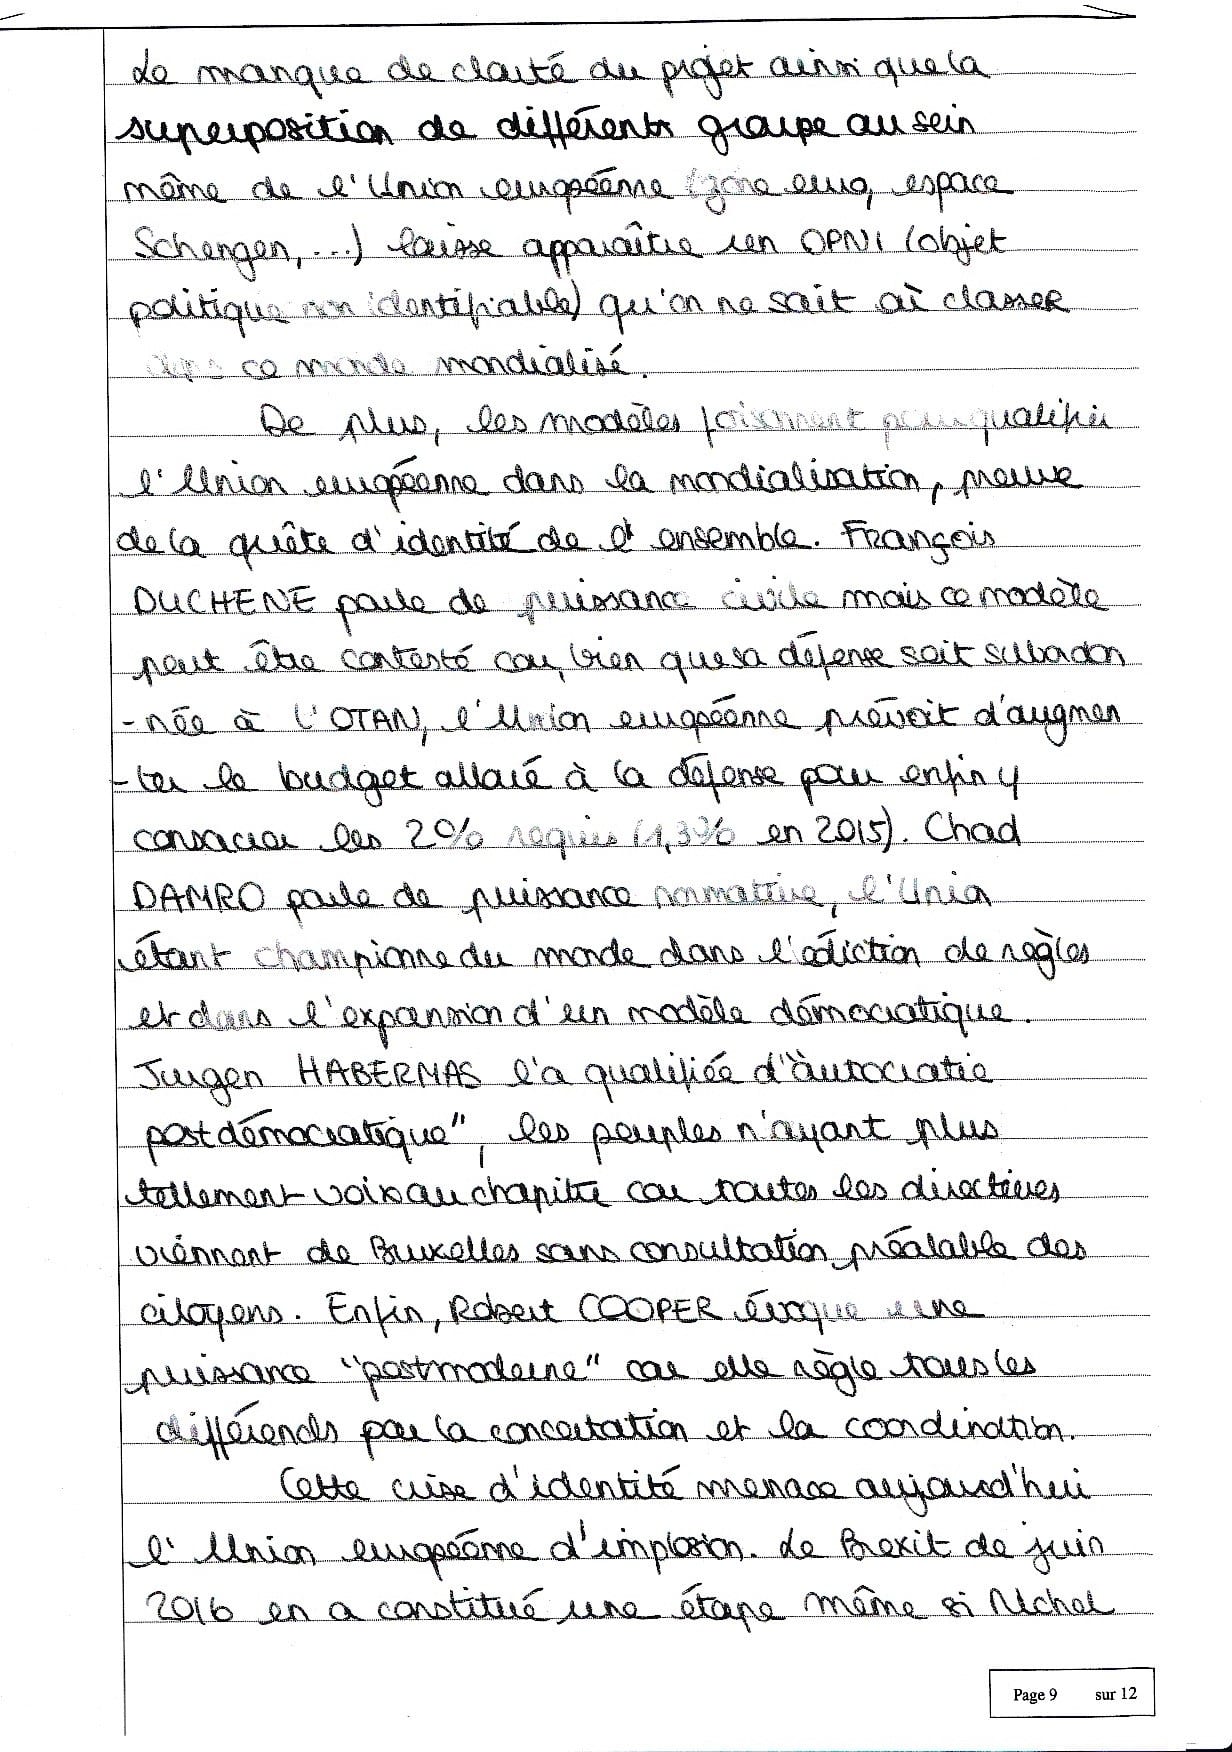 Le manque de clarté du projet ainsi que la
superposition de différents groupe au sein
même de l'Union européenne (zone euro, espace
Schengen, ...) laisse apparaître un OPNI (objet
politique non identifiable) qu'on ne sait où classer
dans ce monde mondialisé.
De plus, les modèles foisonnent pour qualifier
l'Union européenne dans la mondialisation, preuve
de la quête d'identité de l'ensemble. François
DUCHENE parle de puissance civile mais ce modèle
peut être contesté car, bien que sa défense soit subordon
-née à l'OTAN, l'Union européenne prévoit d'augmen
-ter le budget alloué à la défense pour enfin y
consacrer les 2% requis (1,3% en 2015). Chad
DAMRO parle de puissance normative, l'Union
étant championne du monde dans l'édiction de règles
et dans l'expansion d'un modèle démocratique.
Jurgen HABERMAS l'a qualifiée d'"autocratie
postdémocratique", les peuples n'ayant plus
tellement voix au chapitre car toutes les directives
viennent de Bruxelles sans consultation préalable des
citoyens. Enfin, Robert COOPER évoque une
puissance "postmoderne" car elle règle tous les
différends par la concertation et la coordination.
Cette crise d'identité menace aujourd'hui
l'Union européenne d'implosion. Le Brexit de juin
2016 en a constitué une étape même si Michel
Page 9 sur 12